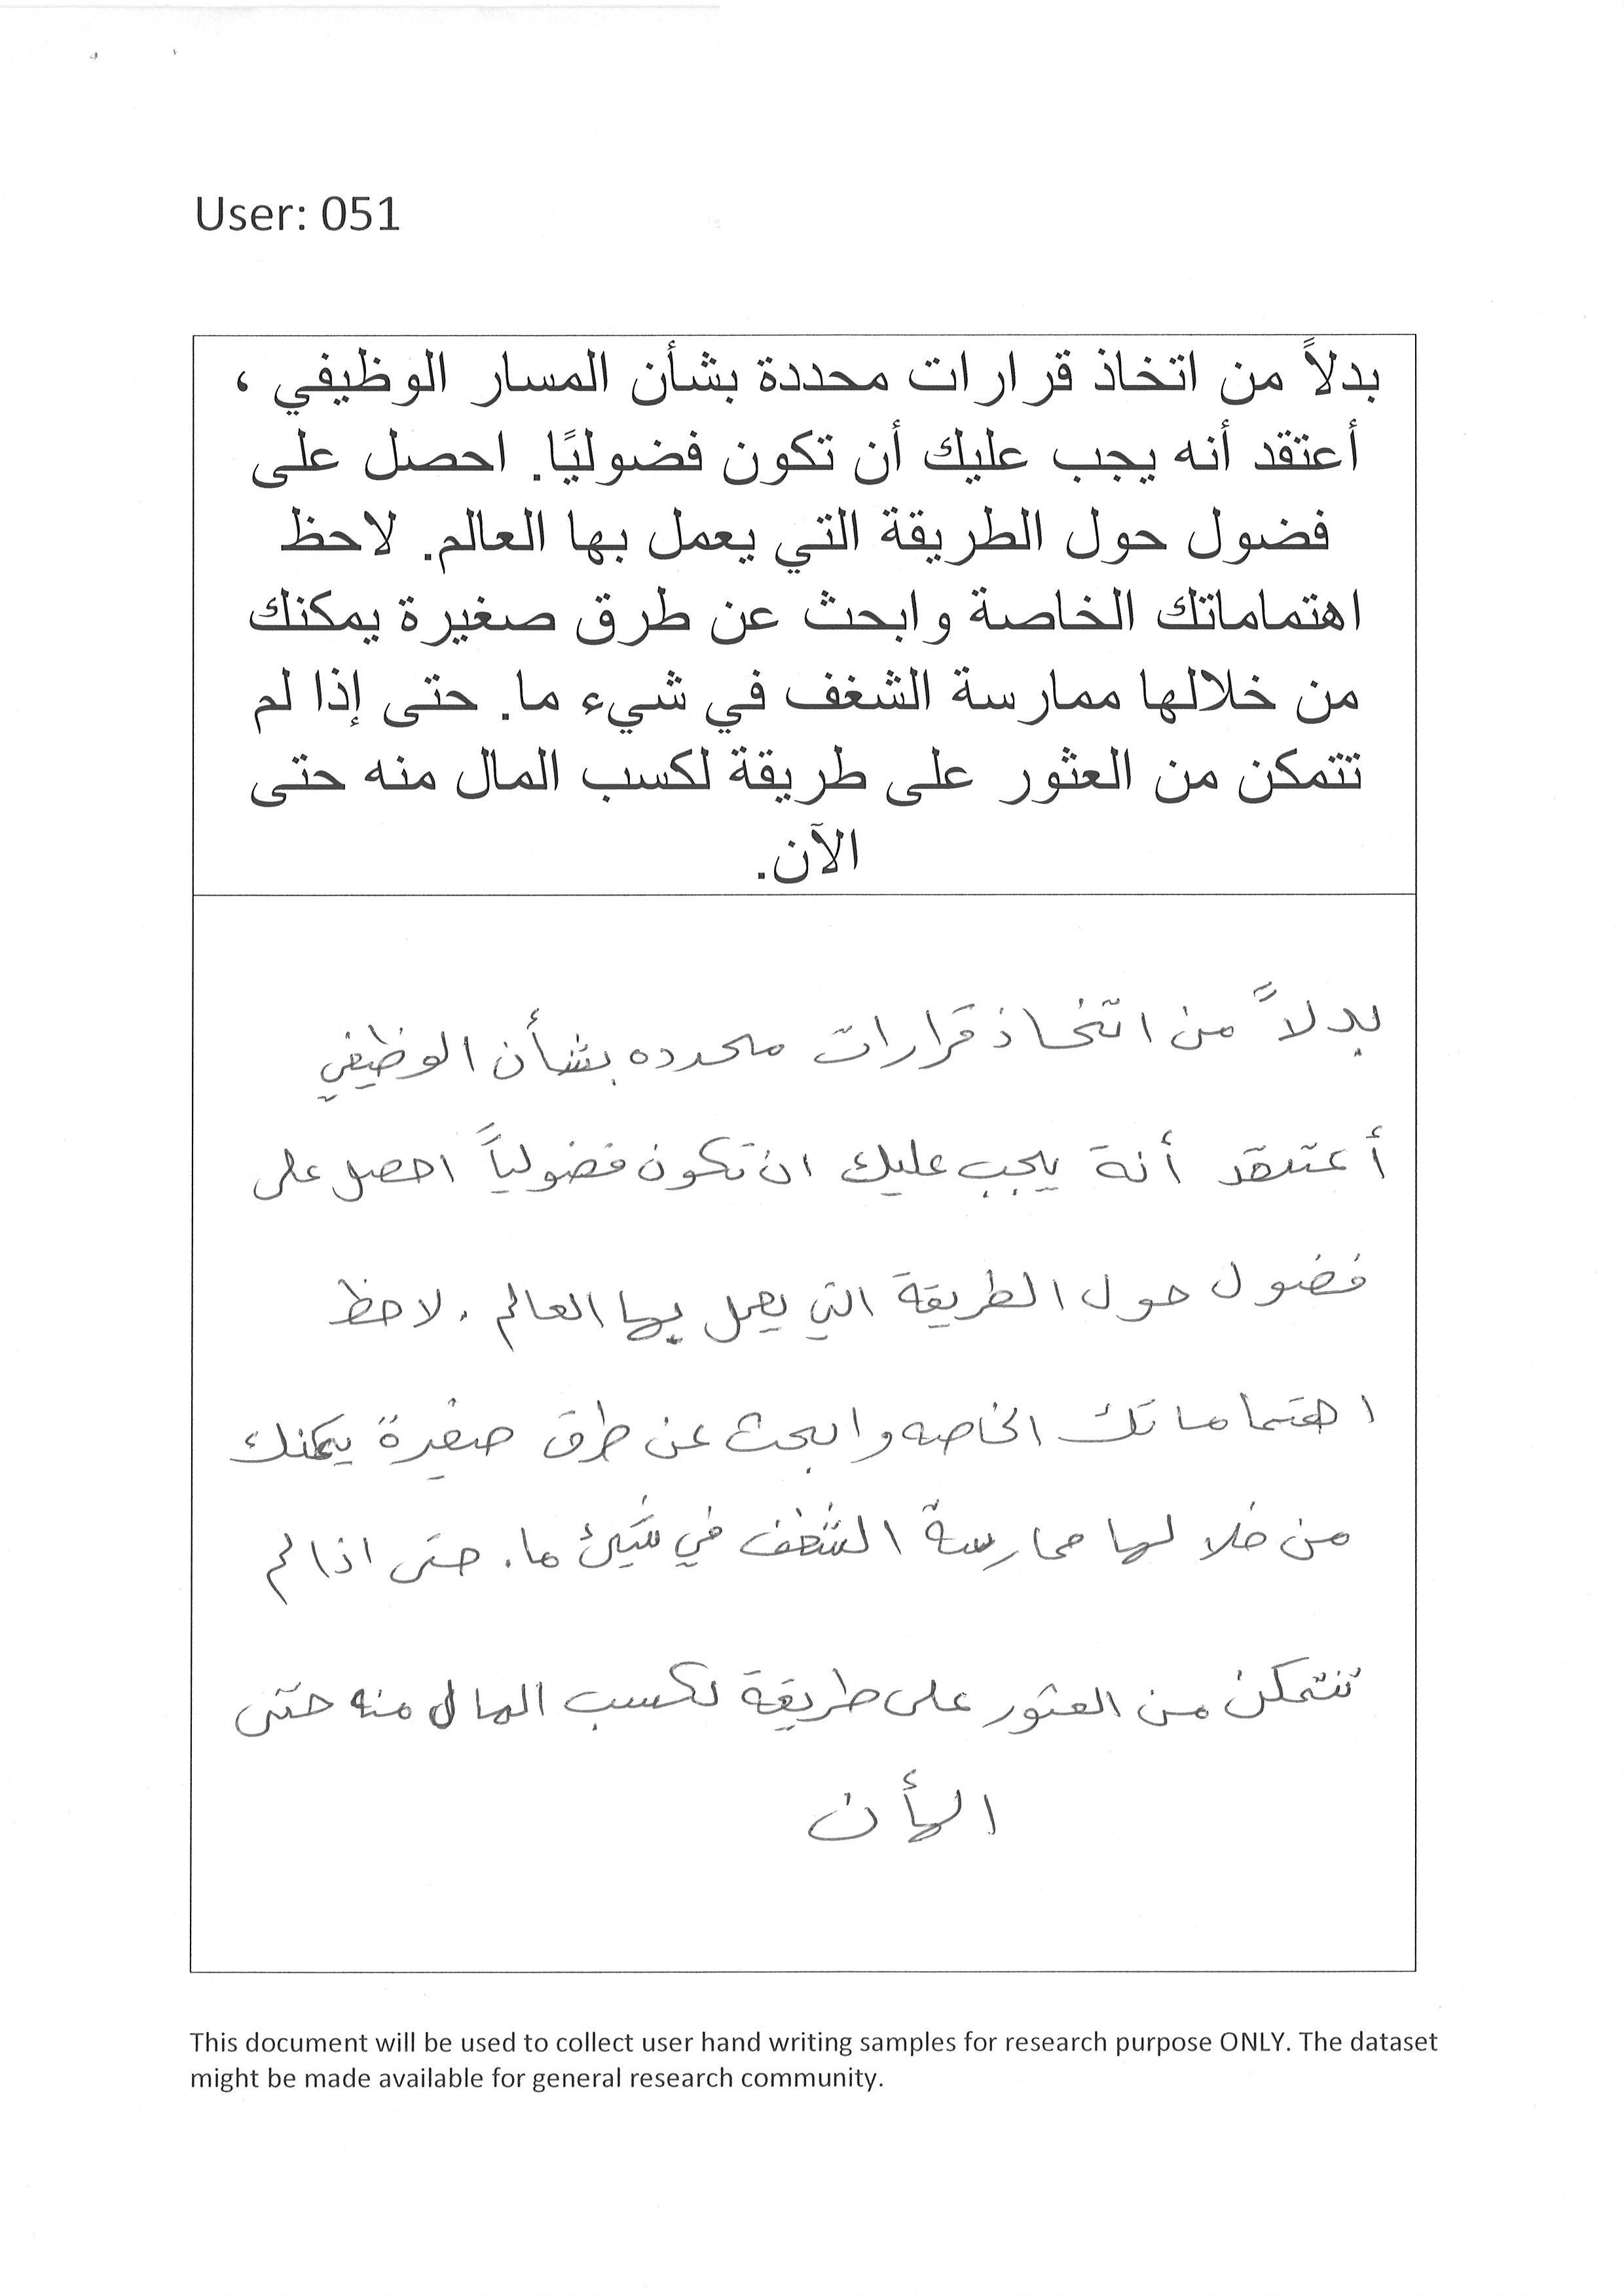 User: 051
بدلاً من اتخاذ قرارات محددة بشأن المسار الوظيفي ،
أعتقد أنه يجب عليك أن تكون فضوليًا. احصل على
فضول حول الطريقة التي يعمل بها العالم. لاحظ
اهتماماتك الخاصة وابحث عن طرق صغيرة يمكنك
من خلالها ممارسة الشغف في شيء ما. حتى إذا لم
تتمكن من العثور على طريقة لكسب المال منه حتى
الآن.
بدلاً من اتخاذ قرارات محدده بشأن الوظيفي
أعتقد أنة يجب عليك ان تكون فضولياً احصل على
فضول حول الطريقة التي يعمل بها العالم . لاحظ
اهتماماتك الخاصه وابحث عن طرق صغيرة يمكنك
من خلالها ممارسة الشغف في شيئ ما. حتى اذا لم
تتمكن من العثور على طريقة لكسب المال منه حتى
الأن
This document will be used to collect user hand writing samples for research purpose ONLY. The dataset
might be made available for general research community.